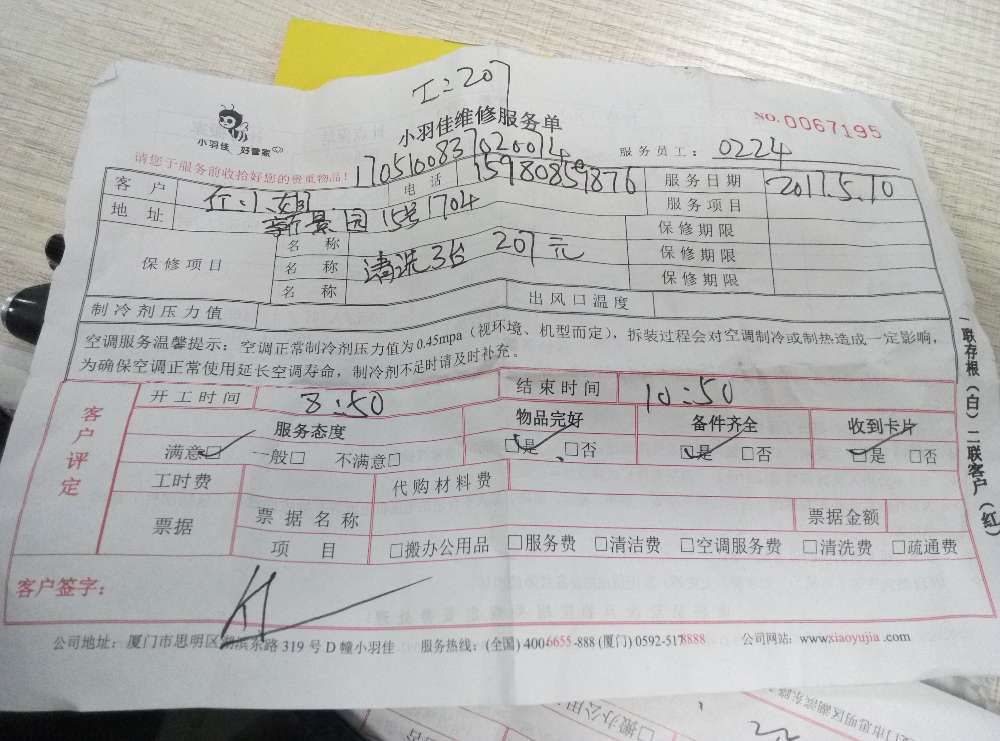 工:207
小羽佳 好管家
小羽佳维修服务单
NO.0067195
请您于服务前收拾好您的贵重物品!
1705100837020074
服务员工: 0224
客 户
电 话 15980859876
服务日期 2017.5.10
地 址 新景园 15号1704
服务项目
保修项目
名 称
保修期限
名 称 清洗3台 207元
保修期限
名 称
保修期限
制冷剂压力值
出风口温度
空调服务温馨提示: 空调正常制冷剂压力值为0.45mpa(视环境、机型而定),拆装过程会对空调制冷或制热造成一定影响,
为确保空调正常使用延长空调寿命,制冷剂不足时请及时补充。
客户评定
开工时间 8:50
结束时间 10:50
服务态度 物品完好 备件齐全 收到卡片
满意□ 一般□ 不满意□ □是 □否 □是 □否 □是 □否
工时费 代购材料费
票据 票据名称 票据金额
项 目 □搬办公用品 □服务费 □清洁费 □空调服务费 □清洗费 □疏通费
客户签字:
公司地址: 厦门市思明区湖滨东路319号D幢小羽佳 服务热线: (全国) 4006655-888 (厦门) 0592-5178888 公司网站: www.xiaoyujia.com
一联存根(白)二联客户(红)
□搬办公用